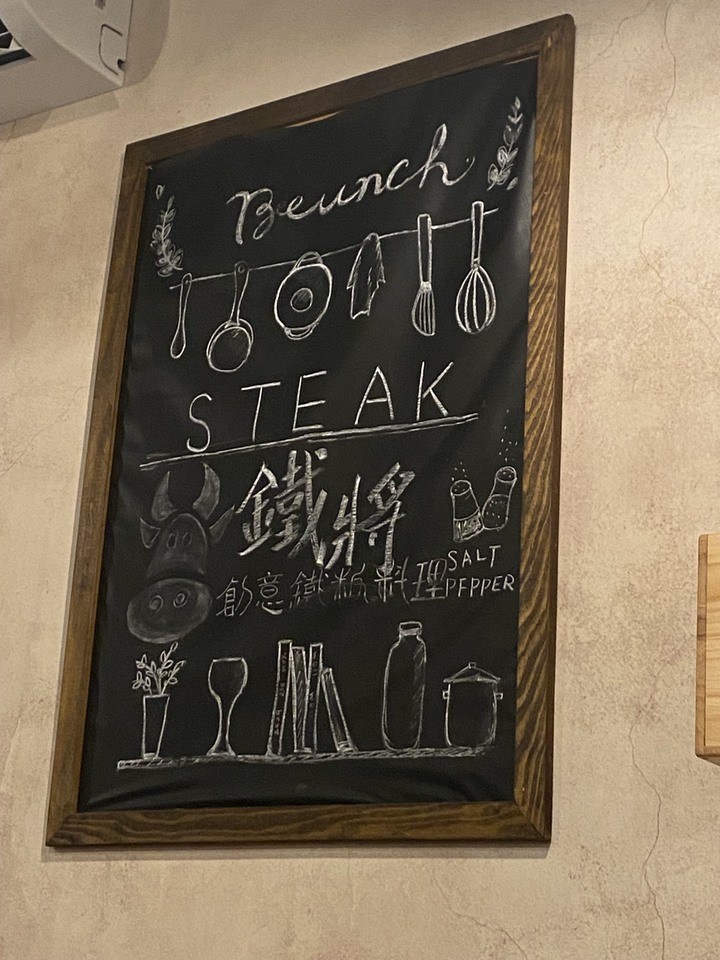 Beunch
STEAK
鐵將
SALT
創意鐵板料理
PEPPER